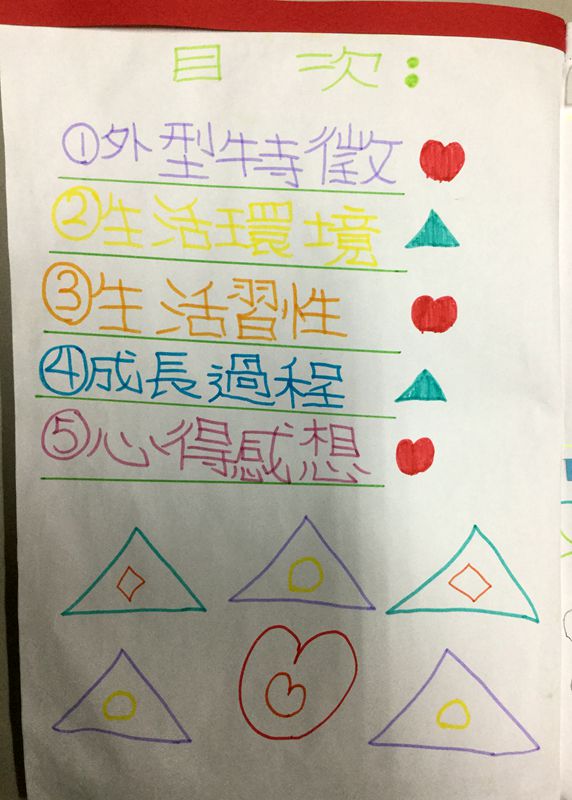 目 次：
①外型特徵
②生活環境
③生活習性
④成長過程
⑤心得感想